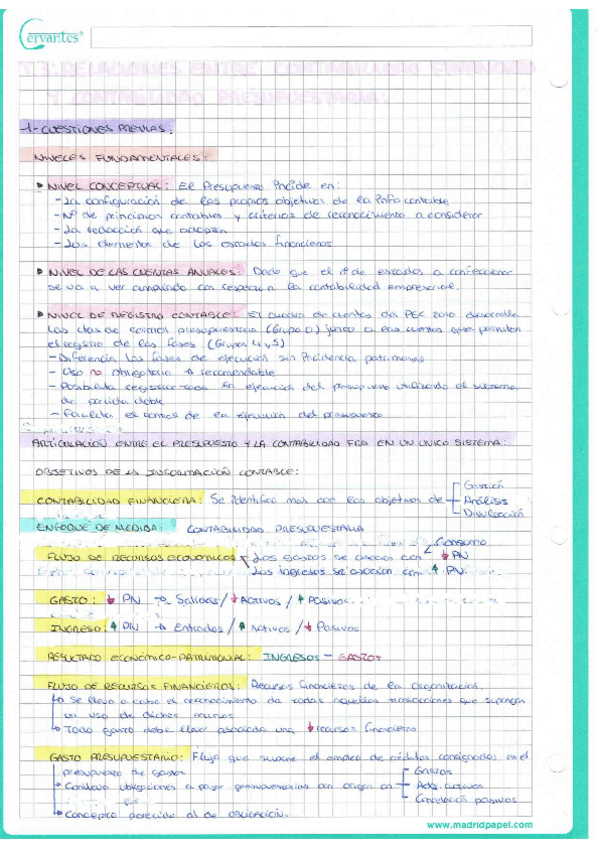 Cervantes
T3: RELACIONES ENTRE CONTABILIDAD FINANCIERA
Y CONTABILIDAD PRESUPUESTARIA:
1- CUESTIONES PREVIAS:
NIVELES FUNDAMENTALES:
NIVEL CONCEPTUAL: El Presupuesto incide en:
- La configuración de los propios objetivos de la info contable
- Nº de principios contables y criterios de reconocimiento a considerar
- La redacción que adoptan
- Los elementos de los estados financieros
NIVEL DE LAS CUENTAS ANUALES: Dado que el nº de estados a confeccionar
se va a ver ampliado con respecto a la contabilidad empresarial.
NIVEL DE REGISTRO CONTABLE: El cuadro de cuentas del PGC 2010 desarrolla
las ctas de control presupuestario (Grupo 0) junto a las cuentas que permiten
el registro de las fases (Grupos 4 y 5)
- Diferencia las fases de ejecución sin incidencia patrimonial
- Uso no obligatorio → recomendable
- Posibilita registrar toda la ejecución del presupuesto utilizando el sistema
de partida doble
- Facilita el control de la ejecución del presupuesto
ARTICULACIÓN ENTRE EL PRESUPUESTO Y LA CONTABILIDAD FRA EN UN ÚNICO SISTEMA:
OBJETIVOS DE LA INFORMACIÓN CONTABLE:
CONTABILIDAD FINANCIERA: Se identifica mas con los objetivos de Gestión
Análisis
Divulgación
ENFOQUE DE MEDIDA: CONTABILIDAD PRESUPUESTARIA
FLUJO DE RECURSOS ECONÓMICOS Los gastos se asocian con Consumo
↓ PN
Los ingresos se asocian con ↑ PN
GASTO: ↓ PN → Salidas / ↓ Activos / ↑ Pasivos
INGRESO: ↑ PN → Entradas / ↑ Activos / ↓ Pasivos
RESULTADO ECONÓMICO-PATRIMONIAL: INGRESOS - GASTOS
FLUJO DE RECURSOS FINANCIEROS: Recursos financieros de la organización.
Se lleva a cabo el reconocimiento de todas aquellas transacciones que supongan
un uso de dichos
Todo gasto debe llevar asociada una ↓ recursos financieros
GASTO PRESUPUESTARIO: Flujo que supone el empleo de créditos consignados en el
presupuesto de gastos
Conlleva obligaciones a pagar presupuestarias con origen en Gastos
Adq. activos
Cancelación pasivos
Concepto parecido al de obligación.
www.madridpapel.com